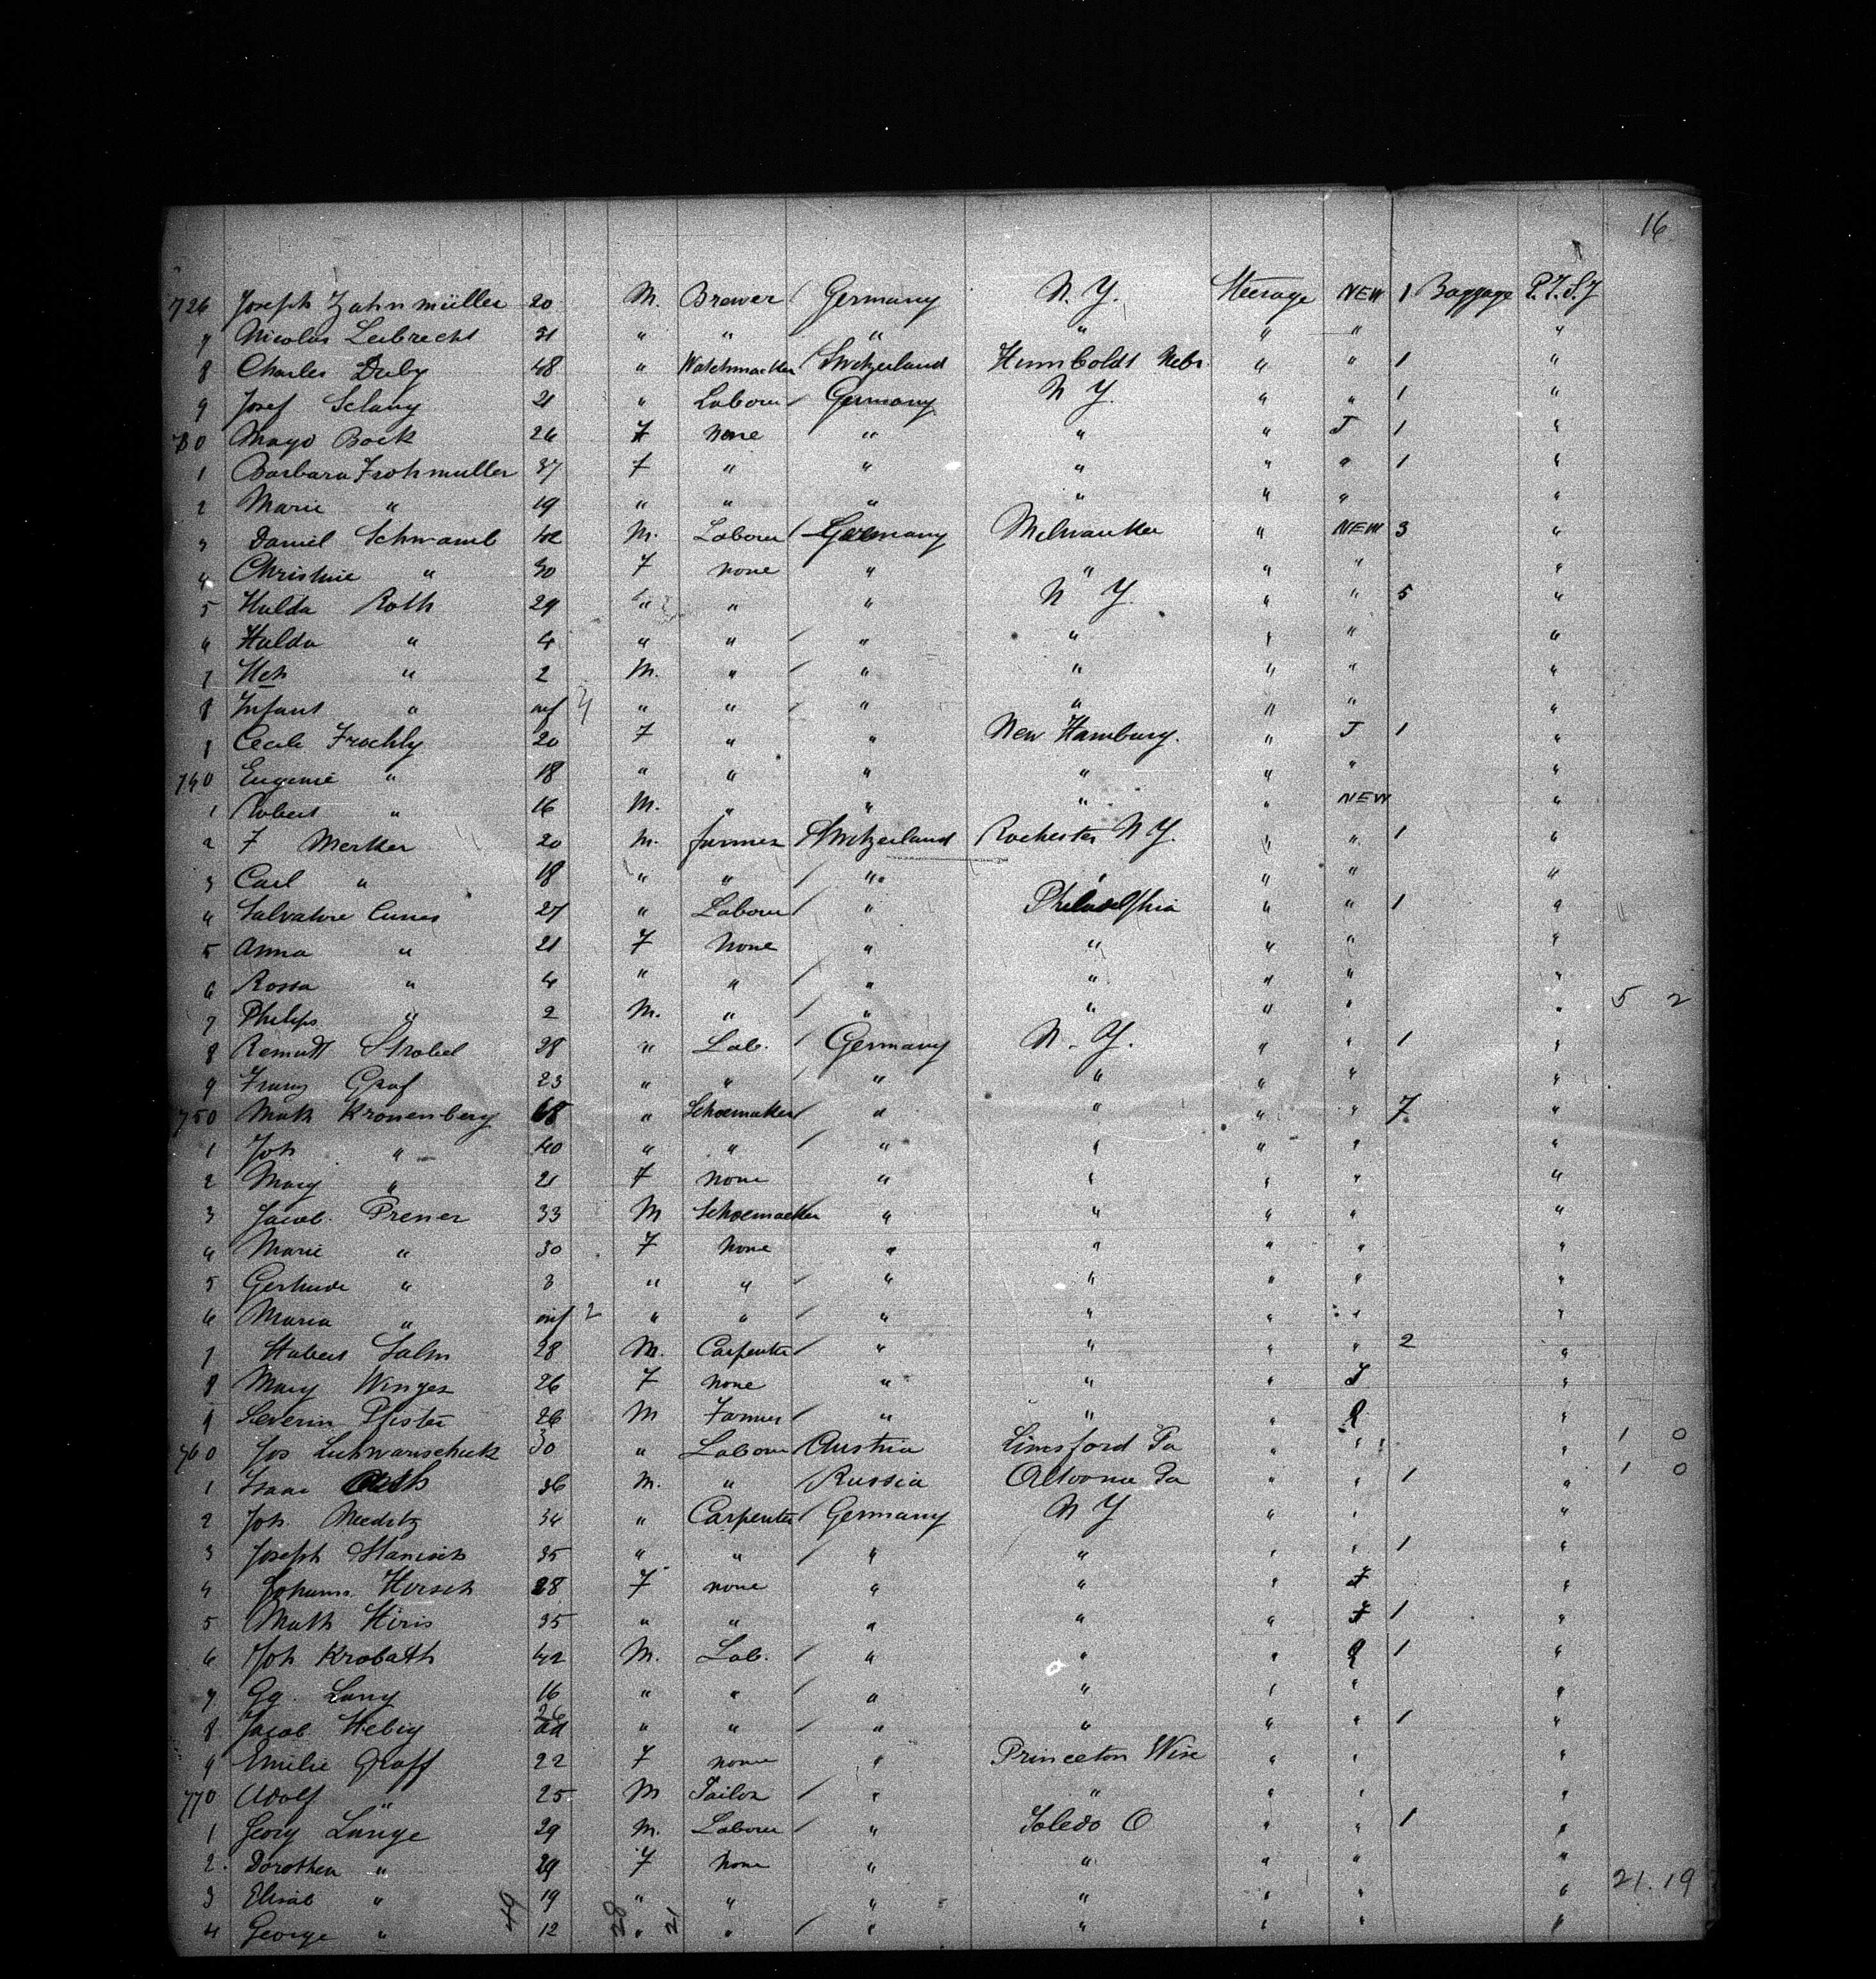 16
726 Joseph Zahnmüller 20 M. Brewer / Germany N. Y. Steerage NEW 1 Baggage P.T.S.J
7 Nicolas Leibrecht 31 " " " " " " "
8 Charles Duby 48 " Watchmacker / Switzerland Humboldt Nebr. " " 1 "
9 Josef Selany 21 " Labour / Germany N Y. " " 1 "
730 Mayo Bock 26 F None " " " J 1 "
1 Barbara Frohmuller 37 F " " " " " 1 "
2 Marie " 19 " " " " " " "
3 Daniel Schwamb 42 M. Labour / Germany Milwaukee " NEW 3 "
4 Christine " 30 F none " " " " "
5 Hulda Roth 29 " " " N Y. " " 5 "
6 Hulda " 4 " " / " " " " "
7 Hch " 2 M. " / " " " " "
8 Infant " inf 4 " " / " " " " "
9 Cecile Frochly 20 F " " New Hamburg. " J 1 "
740 Eugenie " 18 " " " " " " "
1 Robert " 16 M. " " " " NEW "
2 F Merker 20 M. farmer / Switzerland Rochester N Y. " " 1 "
3 Carl " 18 " " / " " " " "
4 Salvatore Cunes 27 " Labour / " Philadelphia " " 1 "
5 Anna " 21 F None " " " " "
6 Rossa " 4 " " / " " " " "
7 Philips " 2 M. " / " " " " " 5 2
8 Strobel 28 " Lab. / Germany N. Y. " " 1 "
9 Franz Graf 23 " " / " " " " "
750 Math Kronenberg 68 " Schoemaker / " " " " 7 "
1 Joh " 40 " " / " " " " "
2 Mary " 21 F none " " " " "
3 Jacob. Prener 33 M Schoemacker " " " " "
4 Marie " 30 F None " " " " "
5 Gertrude " 3 " " / " " " " "
6 Maria " inf 2 " " / " " " " "
7 Hubert Salm 28 M. Carpenter / " " " " 2 "
8 Mary Winges 26 F none " " " J "
9 Severin Pfister 26 M Farmer / " " " Q "
760 Jos 30 " Labour / Austria Linsford Pa " " " 1 0
1 Isaac 36 M. " Russia Altoona Pa " " 1 " 1 0
2 Joh. Needitz 34 " Carpenter / Germany N Y " " "
3 Joseph Stanisch 35 " " / " " " " 1 "
4 Johanna Hirsch 28 F none " " " F "
5 Math Hiris 35 " " " " " F 1 "
6 Joh Krobath 42 M. Lab. / " " " Q 1 "
7 Gg. Lang 16 " " / " " " " "
8 Jacob Hebig 26 ad " " / " " " " 1 "
9 Emilie Graff 22 F none " Princeton Wisc " " "
770 Adolf " 25 M Tailor / " " " " "
1 Georg Lange 29 M. Labour / " Toledo O " " 1 "
2. Dorothea " 29 F None " " " " "
3 Elisab " 19 " " " " " " " 21.19
4 George " 12 " " / " " " " "
49 28 21